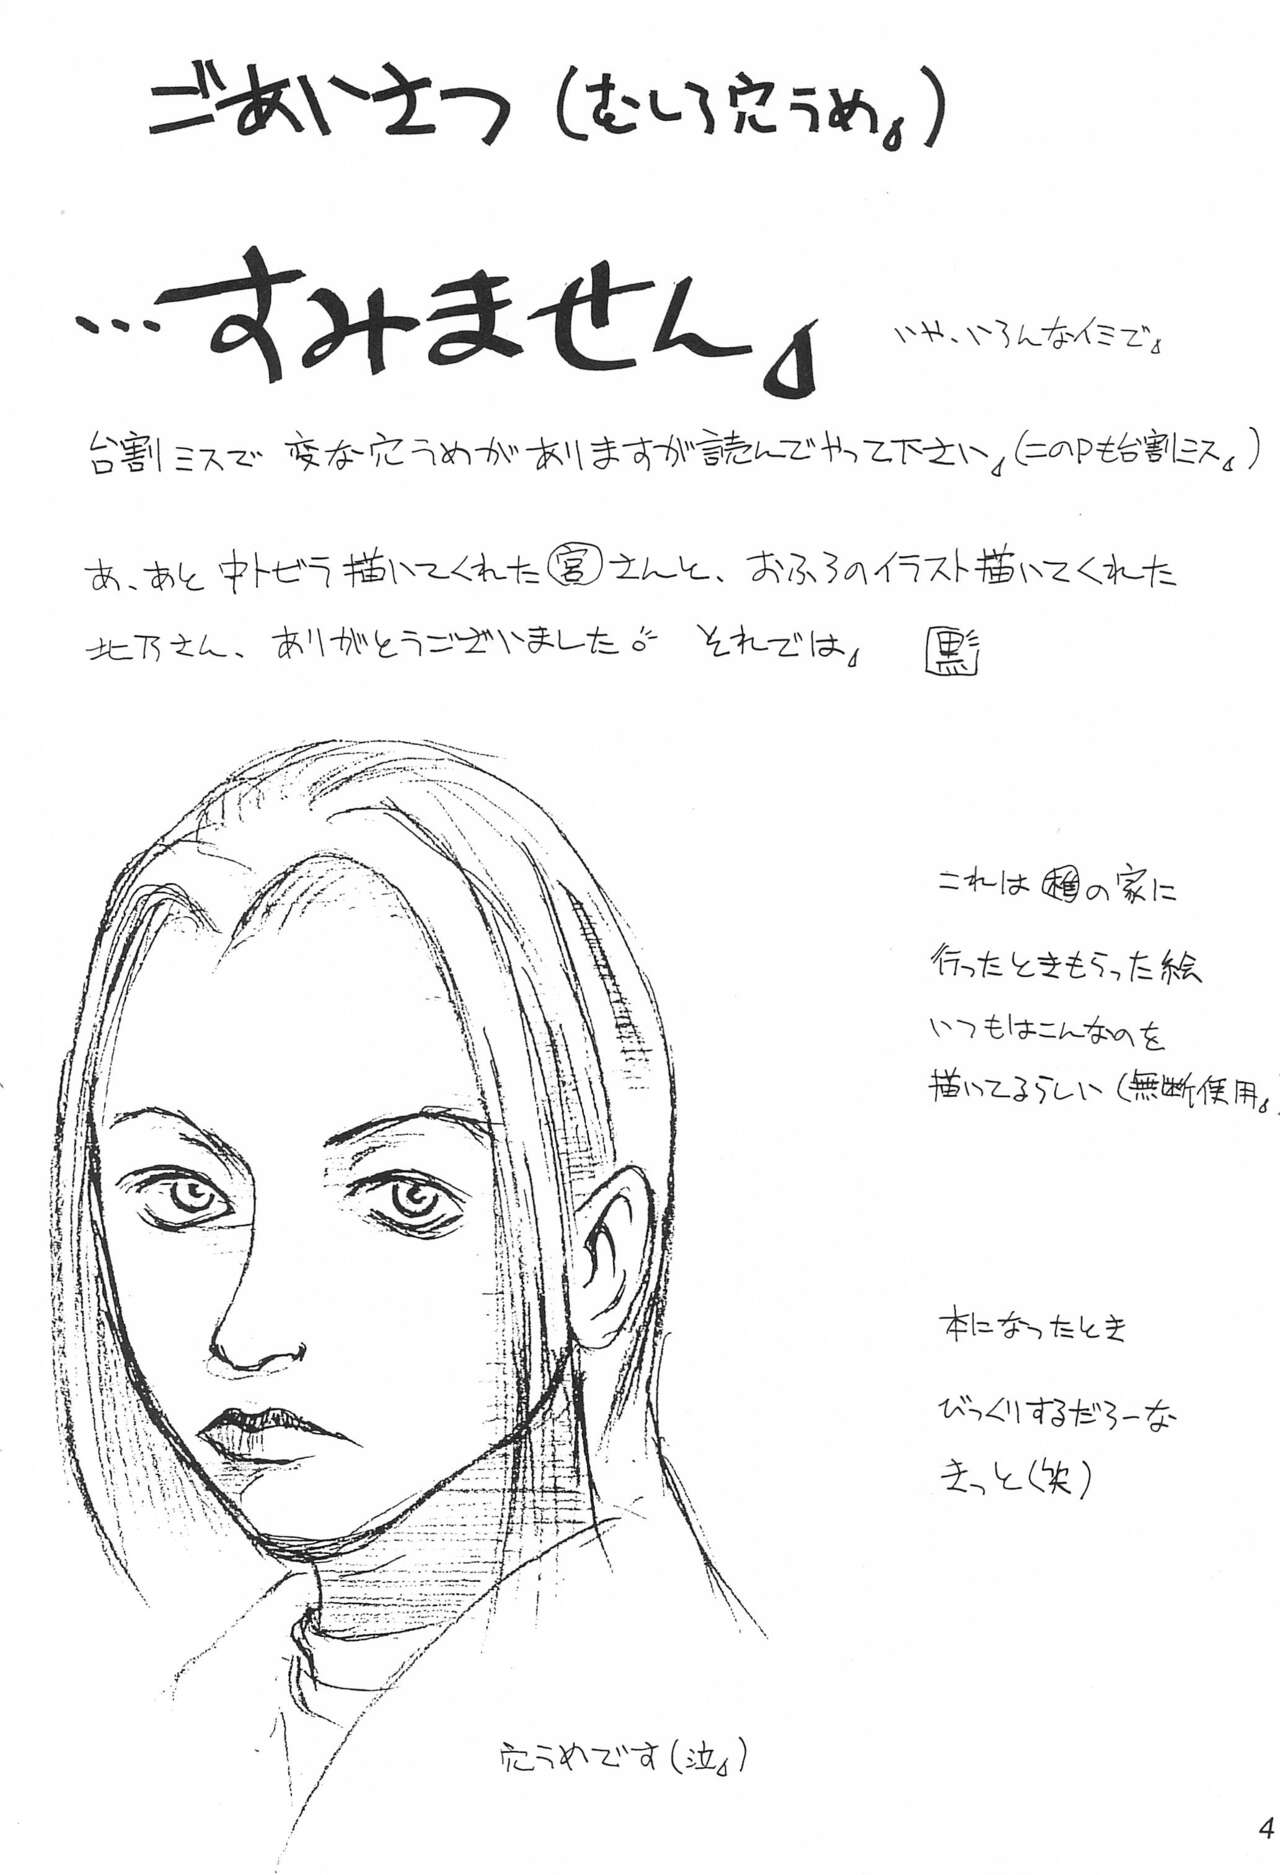 ごあいさつ（むしろ穴うめ。）
…すみません。
いや、いろんなイミで。
台割ミスで 変な穴うめがありますが読んでやって下さい。（このPも台割ミス。）
あ、あと 中トビラ描いてくれた宮さんと、おふろのイラスト描いてくれた
北乃さん、ありがとうございました。 それでは。
これは の家に
行ったときもらった絵
いつもはこんなのを
描いてるらしい（無断使用。）
本になったとき
びっくりするだろーな
きっと（笑）
穴うめです（泣。）
4